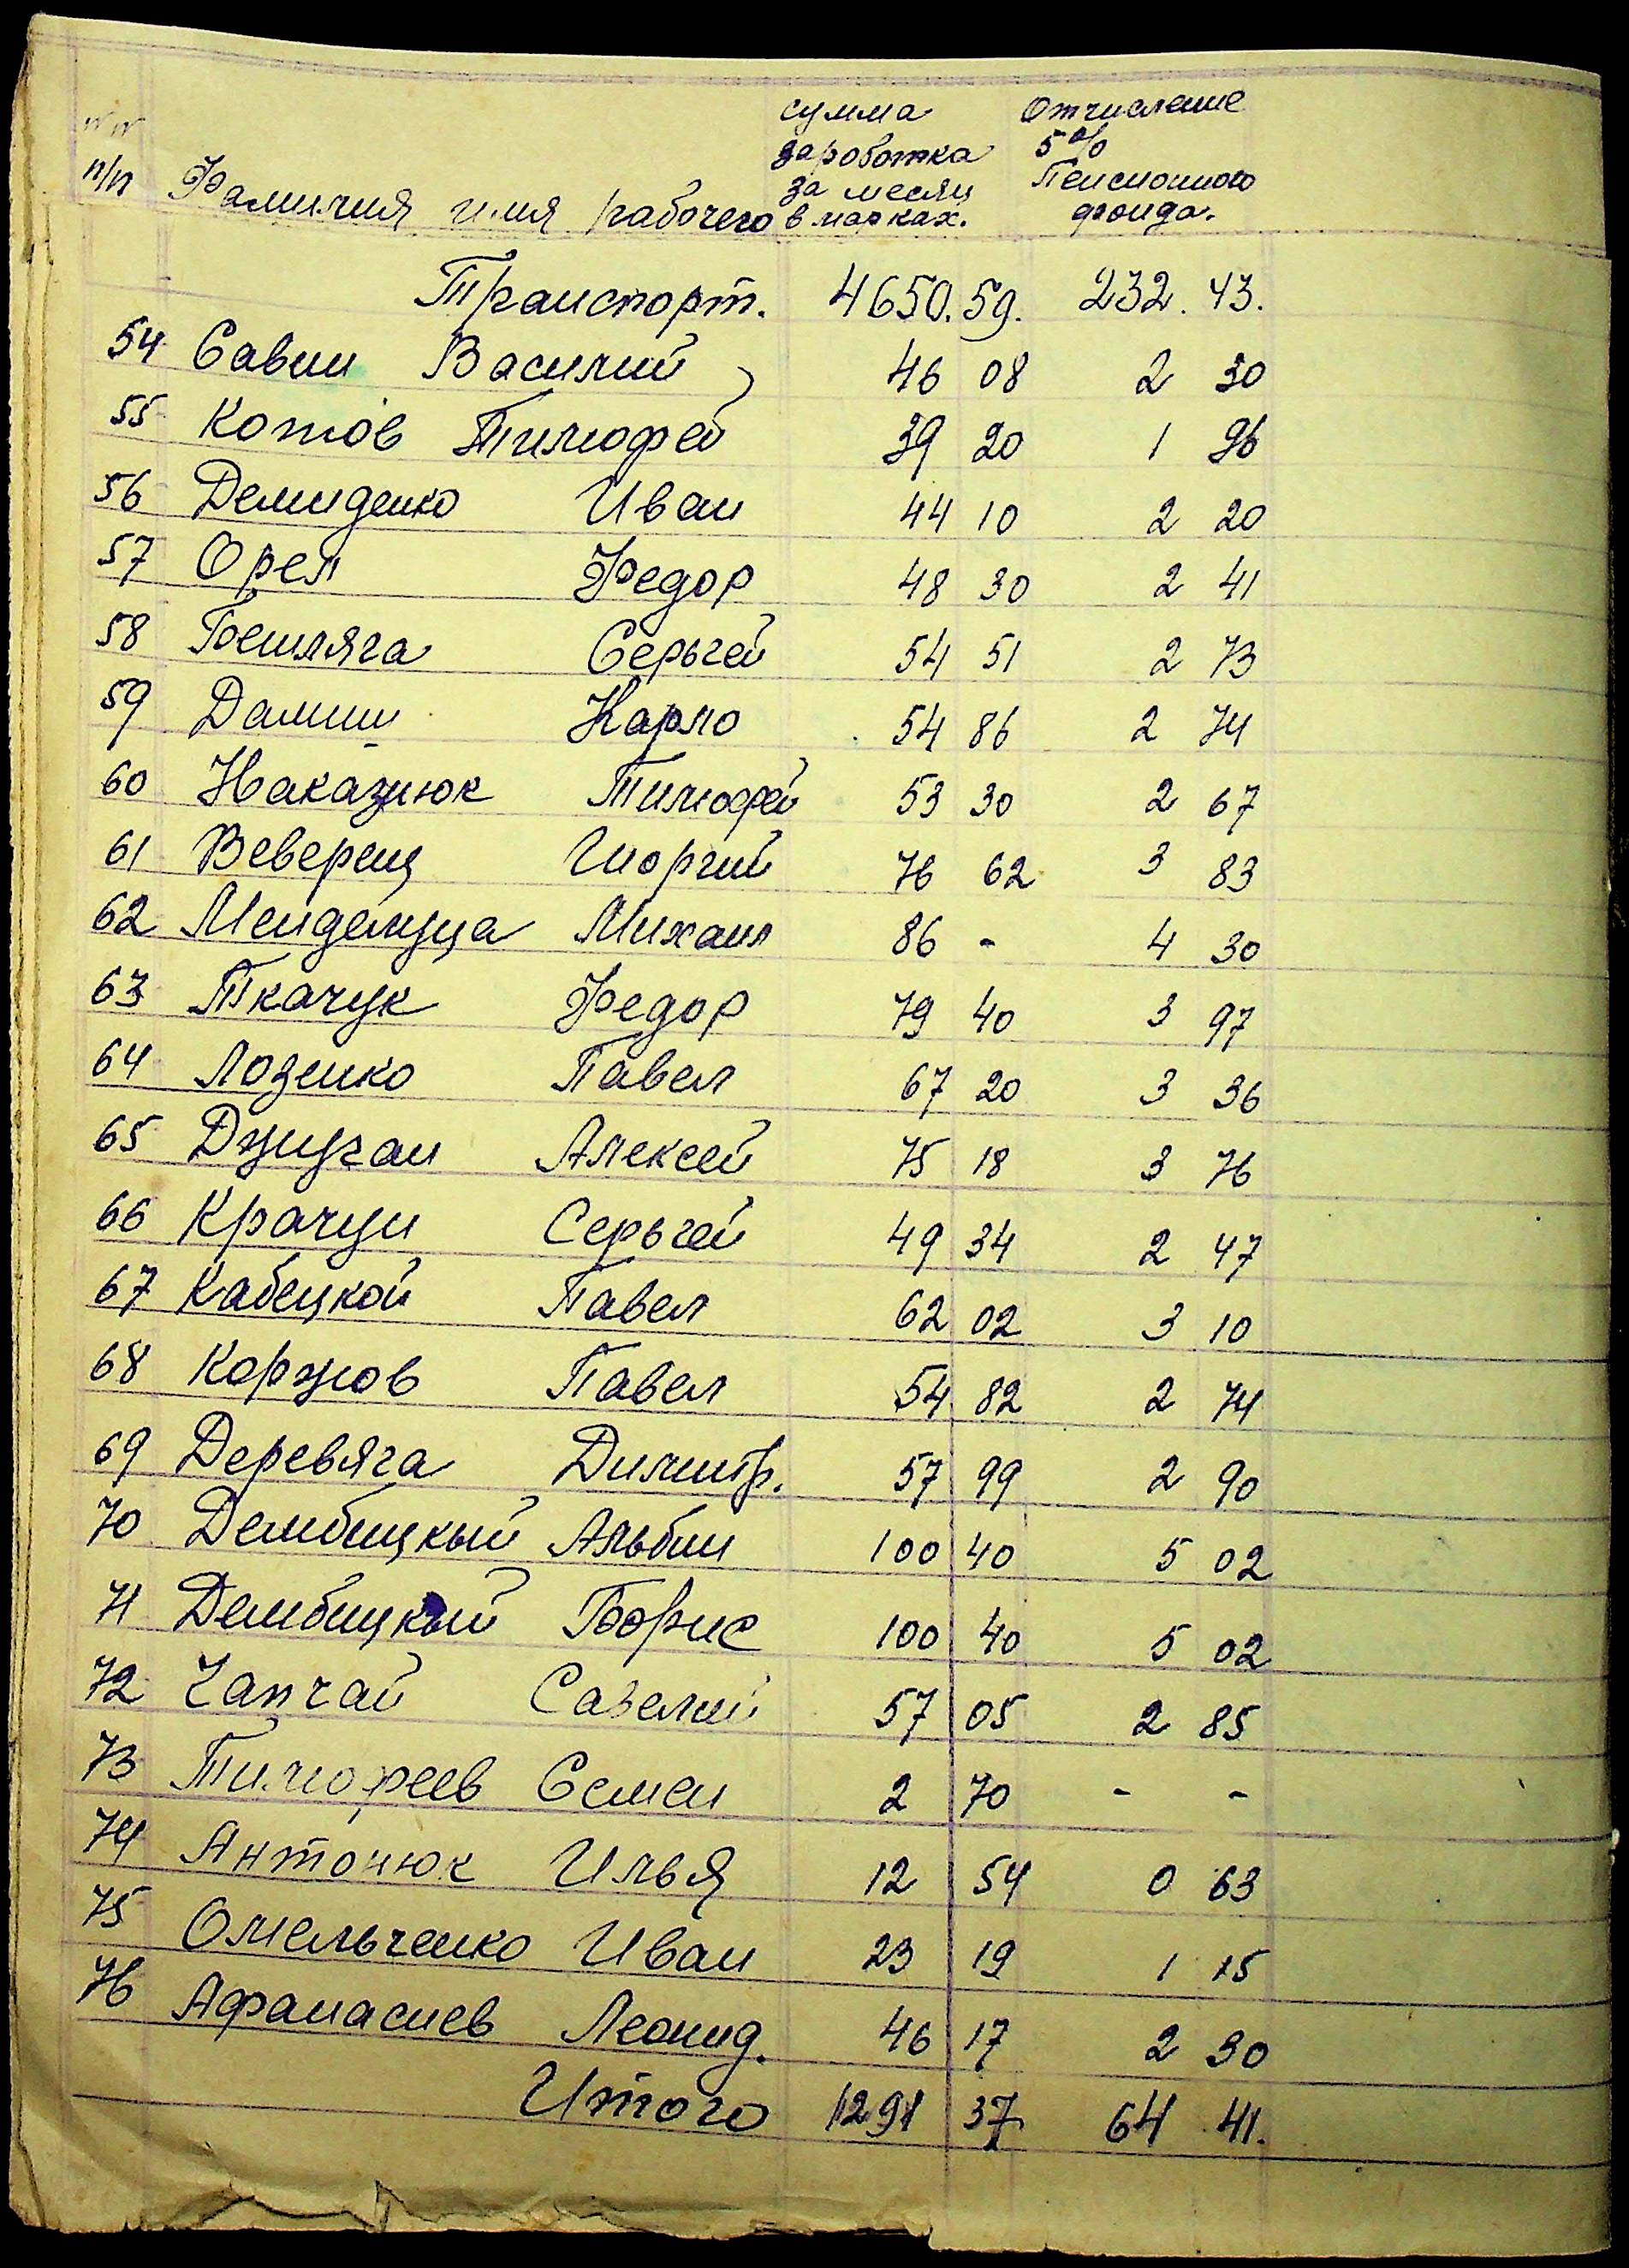 №№ сумма Отчисление
заработка 5%
п/п за месяц Пенсионного
Фамилия имя рабочего в марках. фонда.
Транспорт. 4650.59. 232.43.
54 Савин Василий 46 08 2 30
55 Котов Тимофей 39 20 1 96
56 Демиденко Иван 44 10 2 20
57 Орел Федор 48 30 2 41
58 Бешляга Серьгей 54 51 2 73
59 Далин Карло 54 86 2 74
60 Наказнюк Тимофей 53 30 2 67
61 Веверец Гиоргий 76 62 3 83
62 Менделуца Михаил 86 - 4 30
63 Ткачук Федор 79 40 3 97
64 Лозенко Павел 67 20 3 36
65 Джуган Алексей 75 18 3 76
66 Крачун Серьгей 49 34 2 47
67 Кабецкой Павел 62 02 3 10
68 Коржов Павел 54 82 2 74
69 Деревяга Димитр. 57 99 2 90
70 Дембицкый Альбин 100 40 5 02
71 Дембицкый Борис 100 40 5 02
72 Чапчай Савелий 57 05 2 85
73 Тимофеев Семен 2 70 - -
74 Антонюк Илья 12 54 0 63
75 Омельченко Иван 23 19 1 15
76 Афанасиев Леонид. 46 17 2 30
Итого 1291 37 64 41.